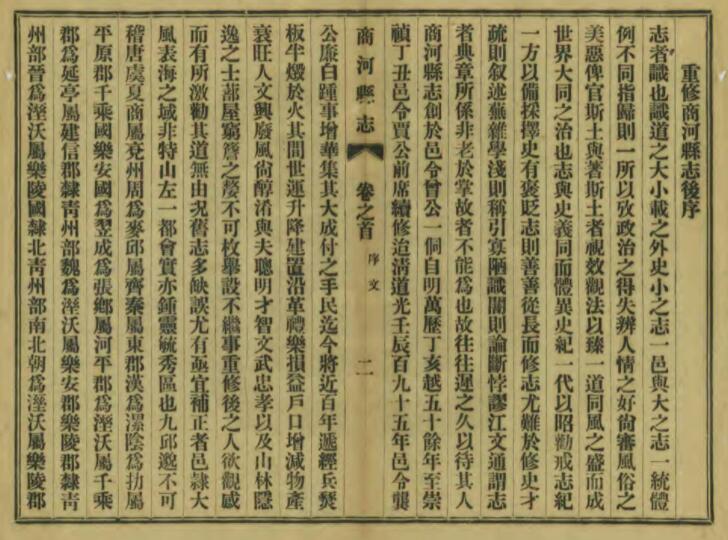 重修商河縣志後序
志者識也識道之大小載之外史小之志一邑與大之志一統體
例不同指歸則一所以攷政治之得失辨人情之好尙審風俗之
美惡俾官斯土與著斯土者視效觀法以臻一道同風之盛而成
世界大同之治也志與史義同而體異史紀一代以昭勸戒志紀
一方以備採擇史有褒貶志則善善從長而修志尤難於修史才
疏則叙述蕪雜學淺則稱引寡陋識闇則論斷悖謬江文通謂志
者典章所係非老於掌故者不能爲也故往往遲之久以待其人
商河縣志創於邑令曾公一侗自明萬歷丁亥越五十餘年至崇
禎丁丑邑令賈公前席續修迨淸道光壬辰百九十五年邑令龔
商河縣志 卷之首 序文 二
公廉白踵事增華集其大成付之手民迄今將近百年遞經兵燹
板半燬於火其間世運升降建置沿革禮樂損益戶口增減物產
衰旺人文興廢風尙醇淆與夫聰明才智文武忠孝以及山林隱
逸之士蔀屋窮簷之嫠不可枚舉設不繼事重修後之人欲觀感
而有所激勸其道無由況舊志多缺誤尤有亟宜補正者邑隷大
風表海之域非特山左一都會實亦鍾靈毓秀區也九邱邈不可
稽唐虞夏商屬兗州周爲麥邱屬齊秦屬東郡漢爲漯陰爲朸屬
平原郡千乘國樂安國爲翌成爲張鄉屬河平郡爲溼沃屬千乘
郡爲延亭屬建信郡隸靑州部魏爲溼沃屬樂安郡樂陵郡隸靑
州部晉爲溼沃屬樂陵國隸北靑州部南北朝爲溼沃屬樂陵郡